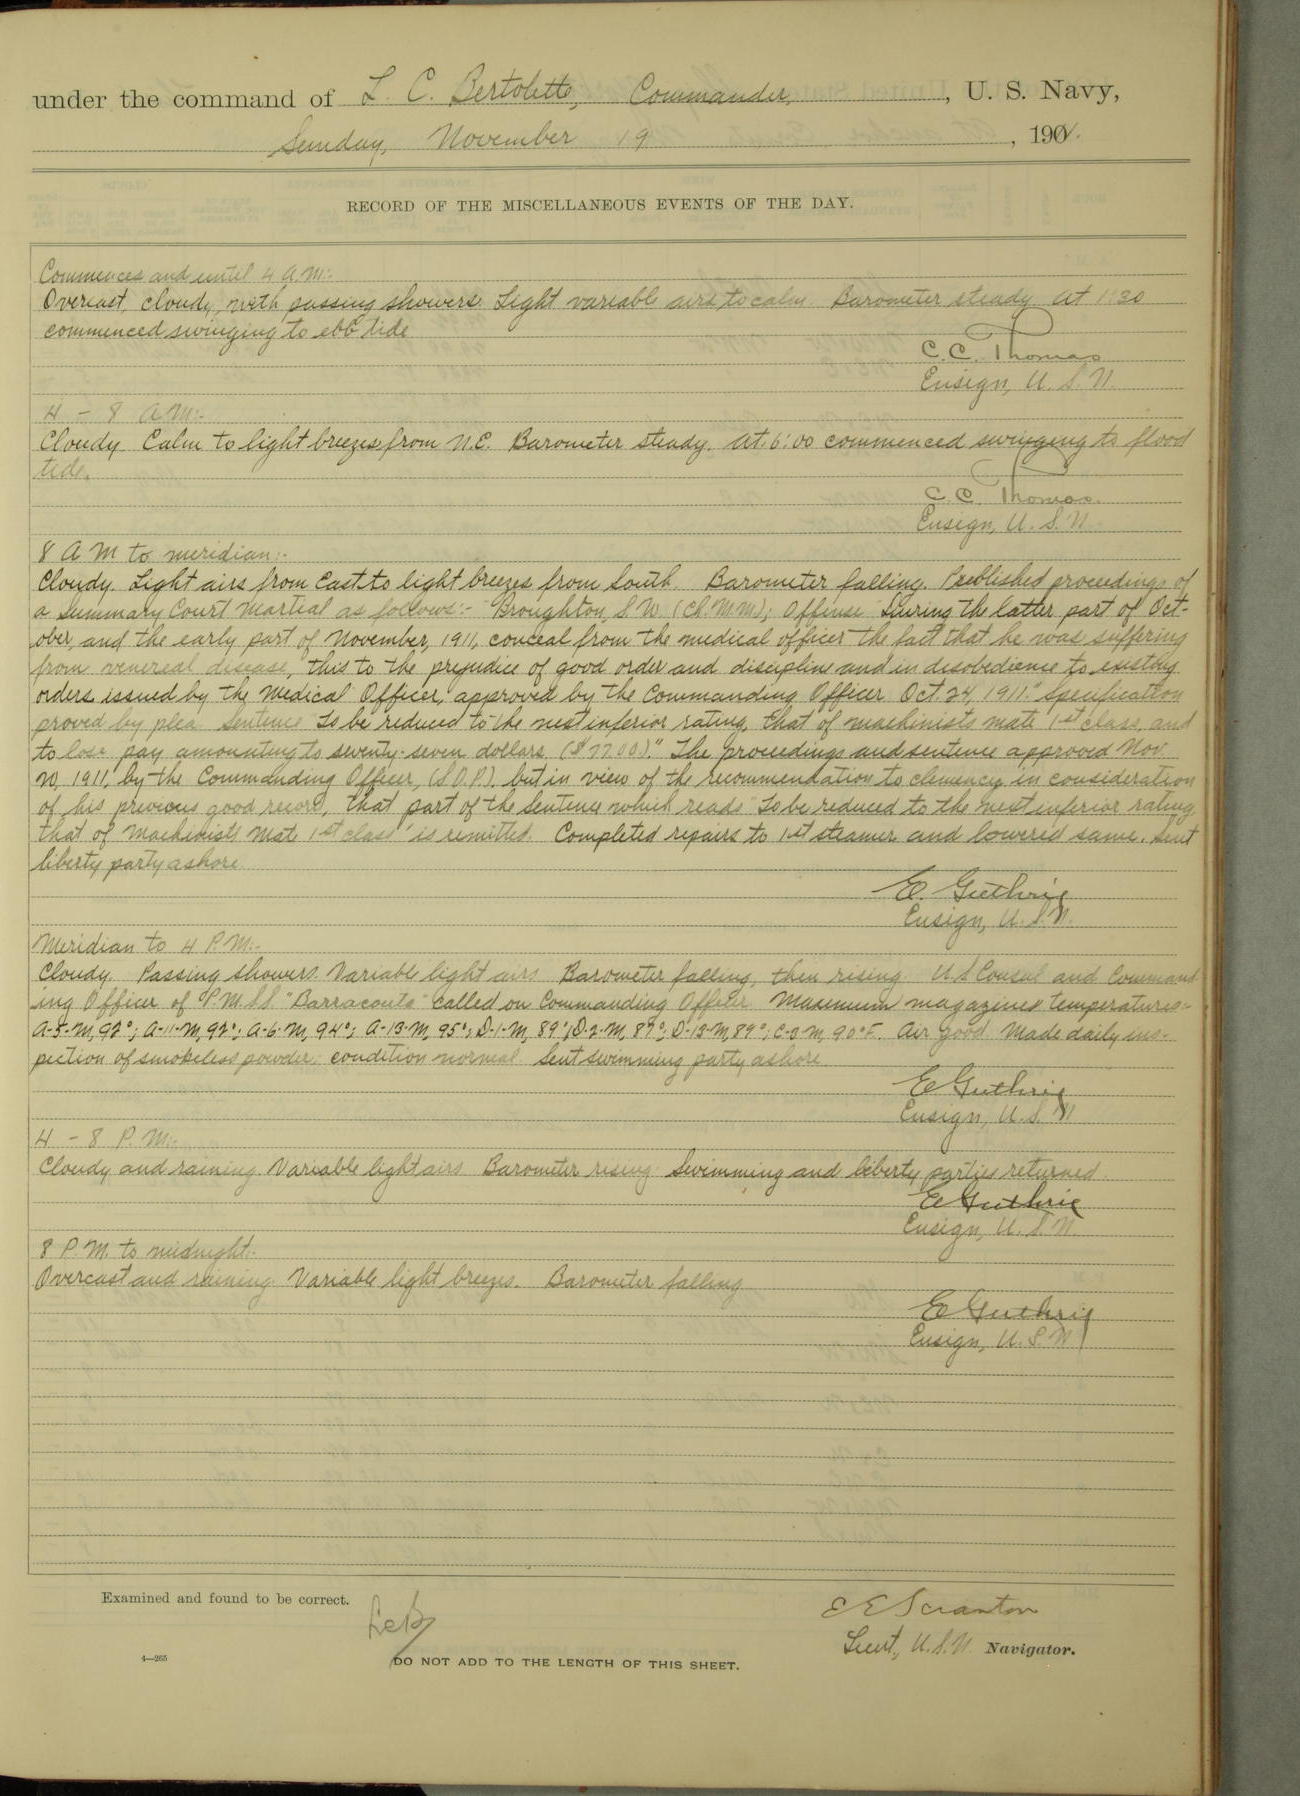 under the command of L. C. Bertolette, Commander, , U. S. Navy,
Sunday, November 19 , 1901.
RECORD OF THE MISCELLANEOUS EVENTS OF THE DAY.
Commences and until 4 A.M:-
Overcast, cloudy, with passing showers. Light variable airs to calm. Barometer steady. At 1:30
commenced swinging to ebb tide
C. C. Thomas
Ensign, U. S. N.
4 - 8 A.M:-
Cloudy. Calm to light breezes from N.E. Barometer steady. At 6:00 commenced swinging to flood
tide.
C. C. Thomas.
Ensign, U. S. N.
8 A M to meridian:-
Cloudy. Light airs from East to light breezes from South. Barometer falling. Published proceedings of
a Summary Court Martial as follows:- "Broughton, S.W. (Ch.M.M.); Offense "During the latter part of Oct-
ober, and the early part of November, 1911, conceal from the medical officer the fact that he was suffering
from venereal disease, this to the prejudice of good order and discipline and in disobedience to existing
orders issued by the Medical Officer, approved by the Commanding Officer Oct. 24, 1911." Specification
proved by plea. Sentence "To be reduced to the next inferior rating, that of machinists mate 1st class, and
to lose pay amounting to seventy-seven dollars ($77.00)." The proceedings and sentence approved Nov.
1911, by the Commanding Officer, (S.O.P.), but in view of the recommendation to clemency in consideration
of his previous good record, that part of the sentence which reads "To be reduced to the next inferior rating,
that of Machinists Mate 1st class" is remitted. Completed repairs to 1st steamer and lowered same. Sent
liberty party ashore.
E. Guthrie
Ensign, U. S. N.
Meridian to 4 P.M:-
Cloudy. Passing showers. Variable light airs. Barometer falling, then rising. U.S. Consul and Command-
ing Officer of P.M.S.S. "Barracouta" called on Commanding Officer. Maximum magazines temperatures:-
A-5-M, 92°; A-11-M, 92°; A-6-M, 94°; A-13-M, 95°; D-1-M, 89°; D-2-M, 87°; D-13-M, 89°; C-3-M, 90°F. Air good. Made daily ins-
pection of smokeless powder: condition normal. Sent swimming party ashore.
E Guthrie
Ensign, U. S. N
4 - 8 P. M:-
Cloudy and raining. Variable light airs. Barometer rising. Swimming and liberty parties returned.
E Guthrie
Ensign, U. S. N.
8 P.M. to midnight:-
Overcast and raining. Variable light breezes. Barometer falling
E Guthrie
Ensign, U. S. N
Examined and found to be correct.
LCB
E E Scranton
Lieut, U.S.N. Navigator.
4—265
DO NOT ADD TO THE LENGTH OF THIS SHEET.